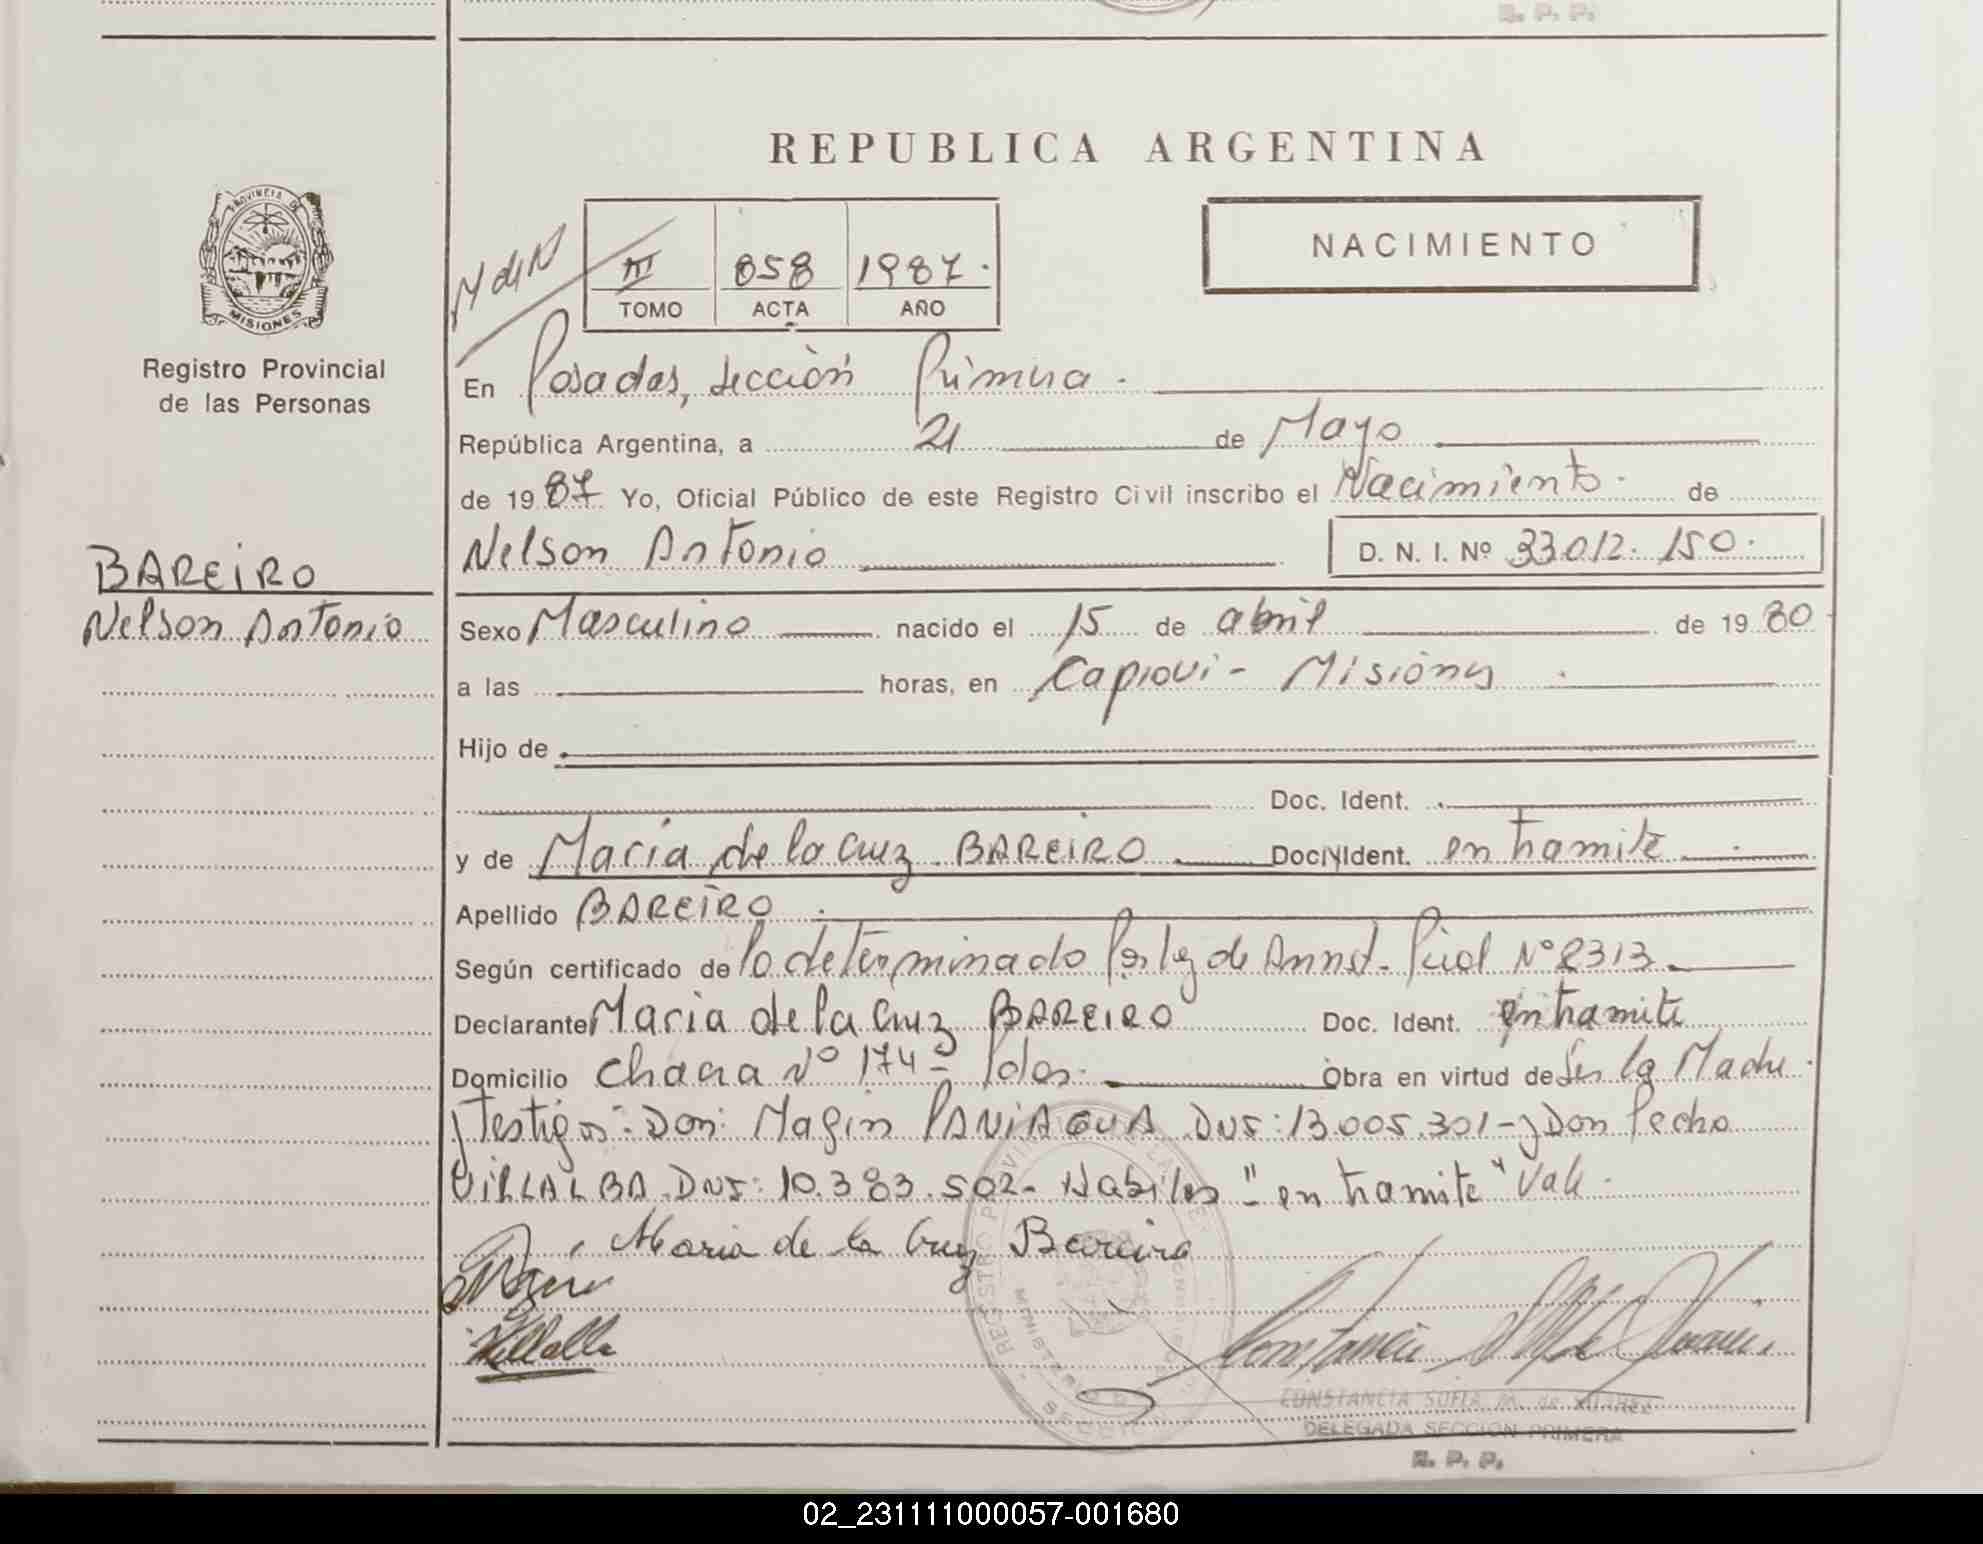 R. P. P.
REPUBLICA ARGENTINA
PROVINCIA DE
MISIONES
Registro Provincial
de las Personas
NACIMIENTO
III 858 1987.
TOMO ACTA AÑO
En Posadas, sección Primera.
República Argentina, a 21 de Mayo
de 1987 Yo, Oficial Público de este Registro Civil inscribo el Nacimiento. de
BAREIRO
Nelson Antonio
Nelson Antonio D. N. I. Nº 33.012.150.
Sexo Masculino nacido el 15 de abril de 1980
a las horas, en Capiovi - Misiones
Hijo de
Doc. Ident.
y de María de la Cruz BAREIRO Doc. Ident. en tramite
Apellido BAREIRO
Según certificado de lo determinado Por ley de Amnst. Pcial Nº 2313
Declarante Maria de la Cruz BAREIRO Doc. Ident. en tramite
Domicilio Chacra Nº 174 - Pdas. Obra en virtud de Ser la Madre.
Testigos: Don: Magin PANIAGUA DNI: 13.005.301 - y Don Pedro
VILLALBA DNI: 10.383.502 - Habiles "en tramite" Vale.
Maria de la Cruz Bareiro
Villalba
CONSTANCIA SOFIA M. de
DELEGADA SECCION PRIMERA
R. P. P.
02_231111000057-001680